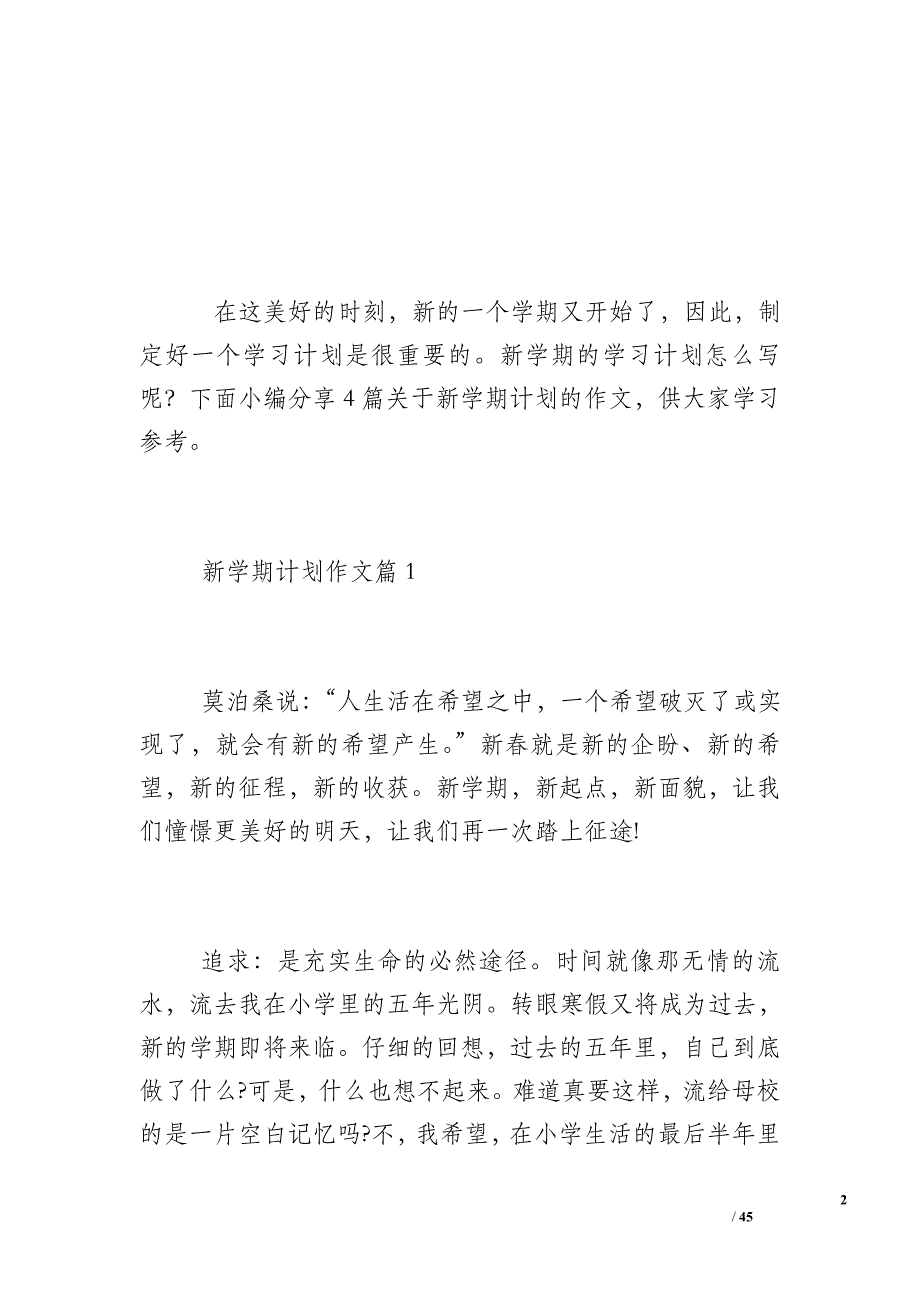 在这美好的时刻，新的一个学期又开始了，因此，制
定好一个学习计划是很重要的。新学期的学习计划怎么写
呢？下面小编分享4篇关于新学期计划的作文，供大家学习
参考。
新学期计划作文篇1
莫泊桑说：“人生活在希望之中，一个希望破灭了或实
现了，就会有新的希望产生。”新春就是新的企盼、新的希
望，新的征程，新的收获。新学期，新起点，新面貌，让我
们憧憬更美好的明天，让我们再一次踏上征途!
追求：是充实生命的必然途径。时间就像那无情的流
水，流去我在小学里的五年光阴。转眼寒假又将成为过去，
新的学期即将来临。仔细的回想，过去的五年里，自己到底
做了什么?可是，什么也想不起来。难道真要这样，流给母校
的是一片空白记忆吗?不，我希望，在小学生活的最后半年里
2
/ 45